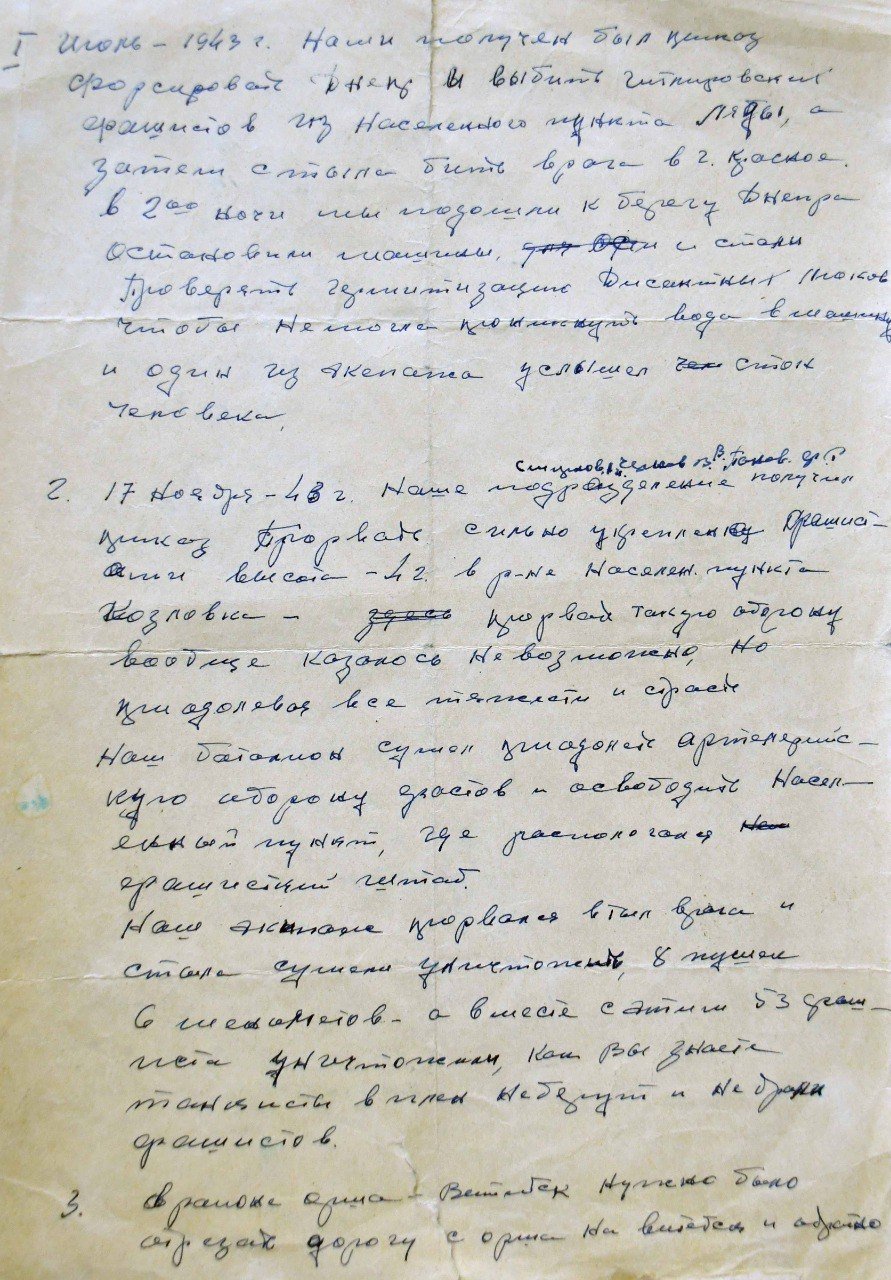 I Июль - 1943 г. Нами получен был приказ
форсировать Днепр и выбить гитлеровских
фашистов из населенного пункта Ляды, а
затем с тыла бить врага в г. Красное.
в 2⁰⁰ ночи мы подошли к берегу Днепра
остановили машины, и стали
Проверять герметизацию Дисантных люков
чтобы не могла проникнуть вода в машину
и один из экепажа услышал стон
человека,
2. 17 Ноября - 43 г. Наше подразделение получил
приказ Прорвать сильно укреплен фашист-
ами высота - 42. в р-не населен. пункта
Козловка - здесь прорвать такую оборону
вообще казалось невозможно, но
приадолевая все тяжести и страсти
наш батальон сумел приадолеть артелерийс-
кую оборону фастов и освободить насел-
енный пункт, где распологался
фашистский штаб.
Наш экипаж прорвался в тыл врага и
с тыла сумели уничтожить, 8 пушек
6 менометов - а вместе с этим 53 фаш-
иста уничтожили, как Вы знаете
танкисты в плен не берут и не брали
фашистов.
3. в районе орша - Витебск нужно было
отрезать дорогу с орши на витебск и обратно